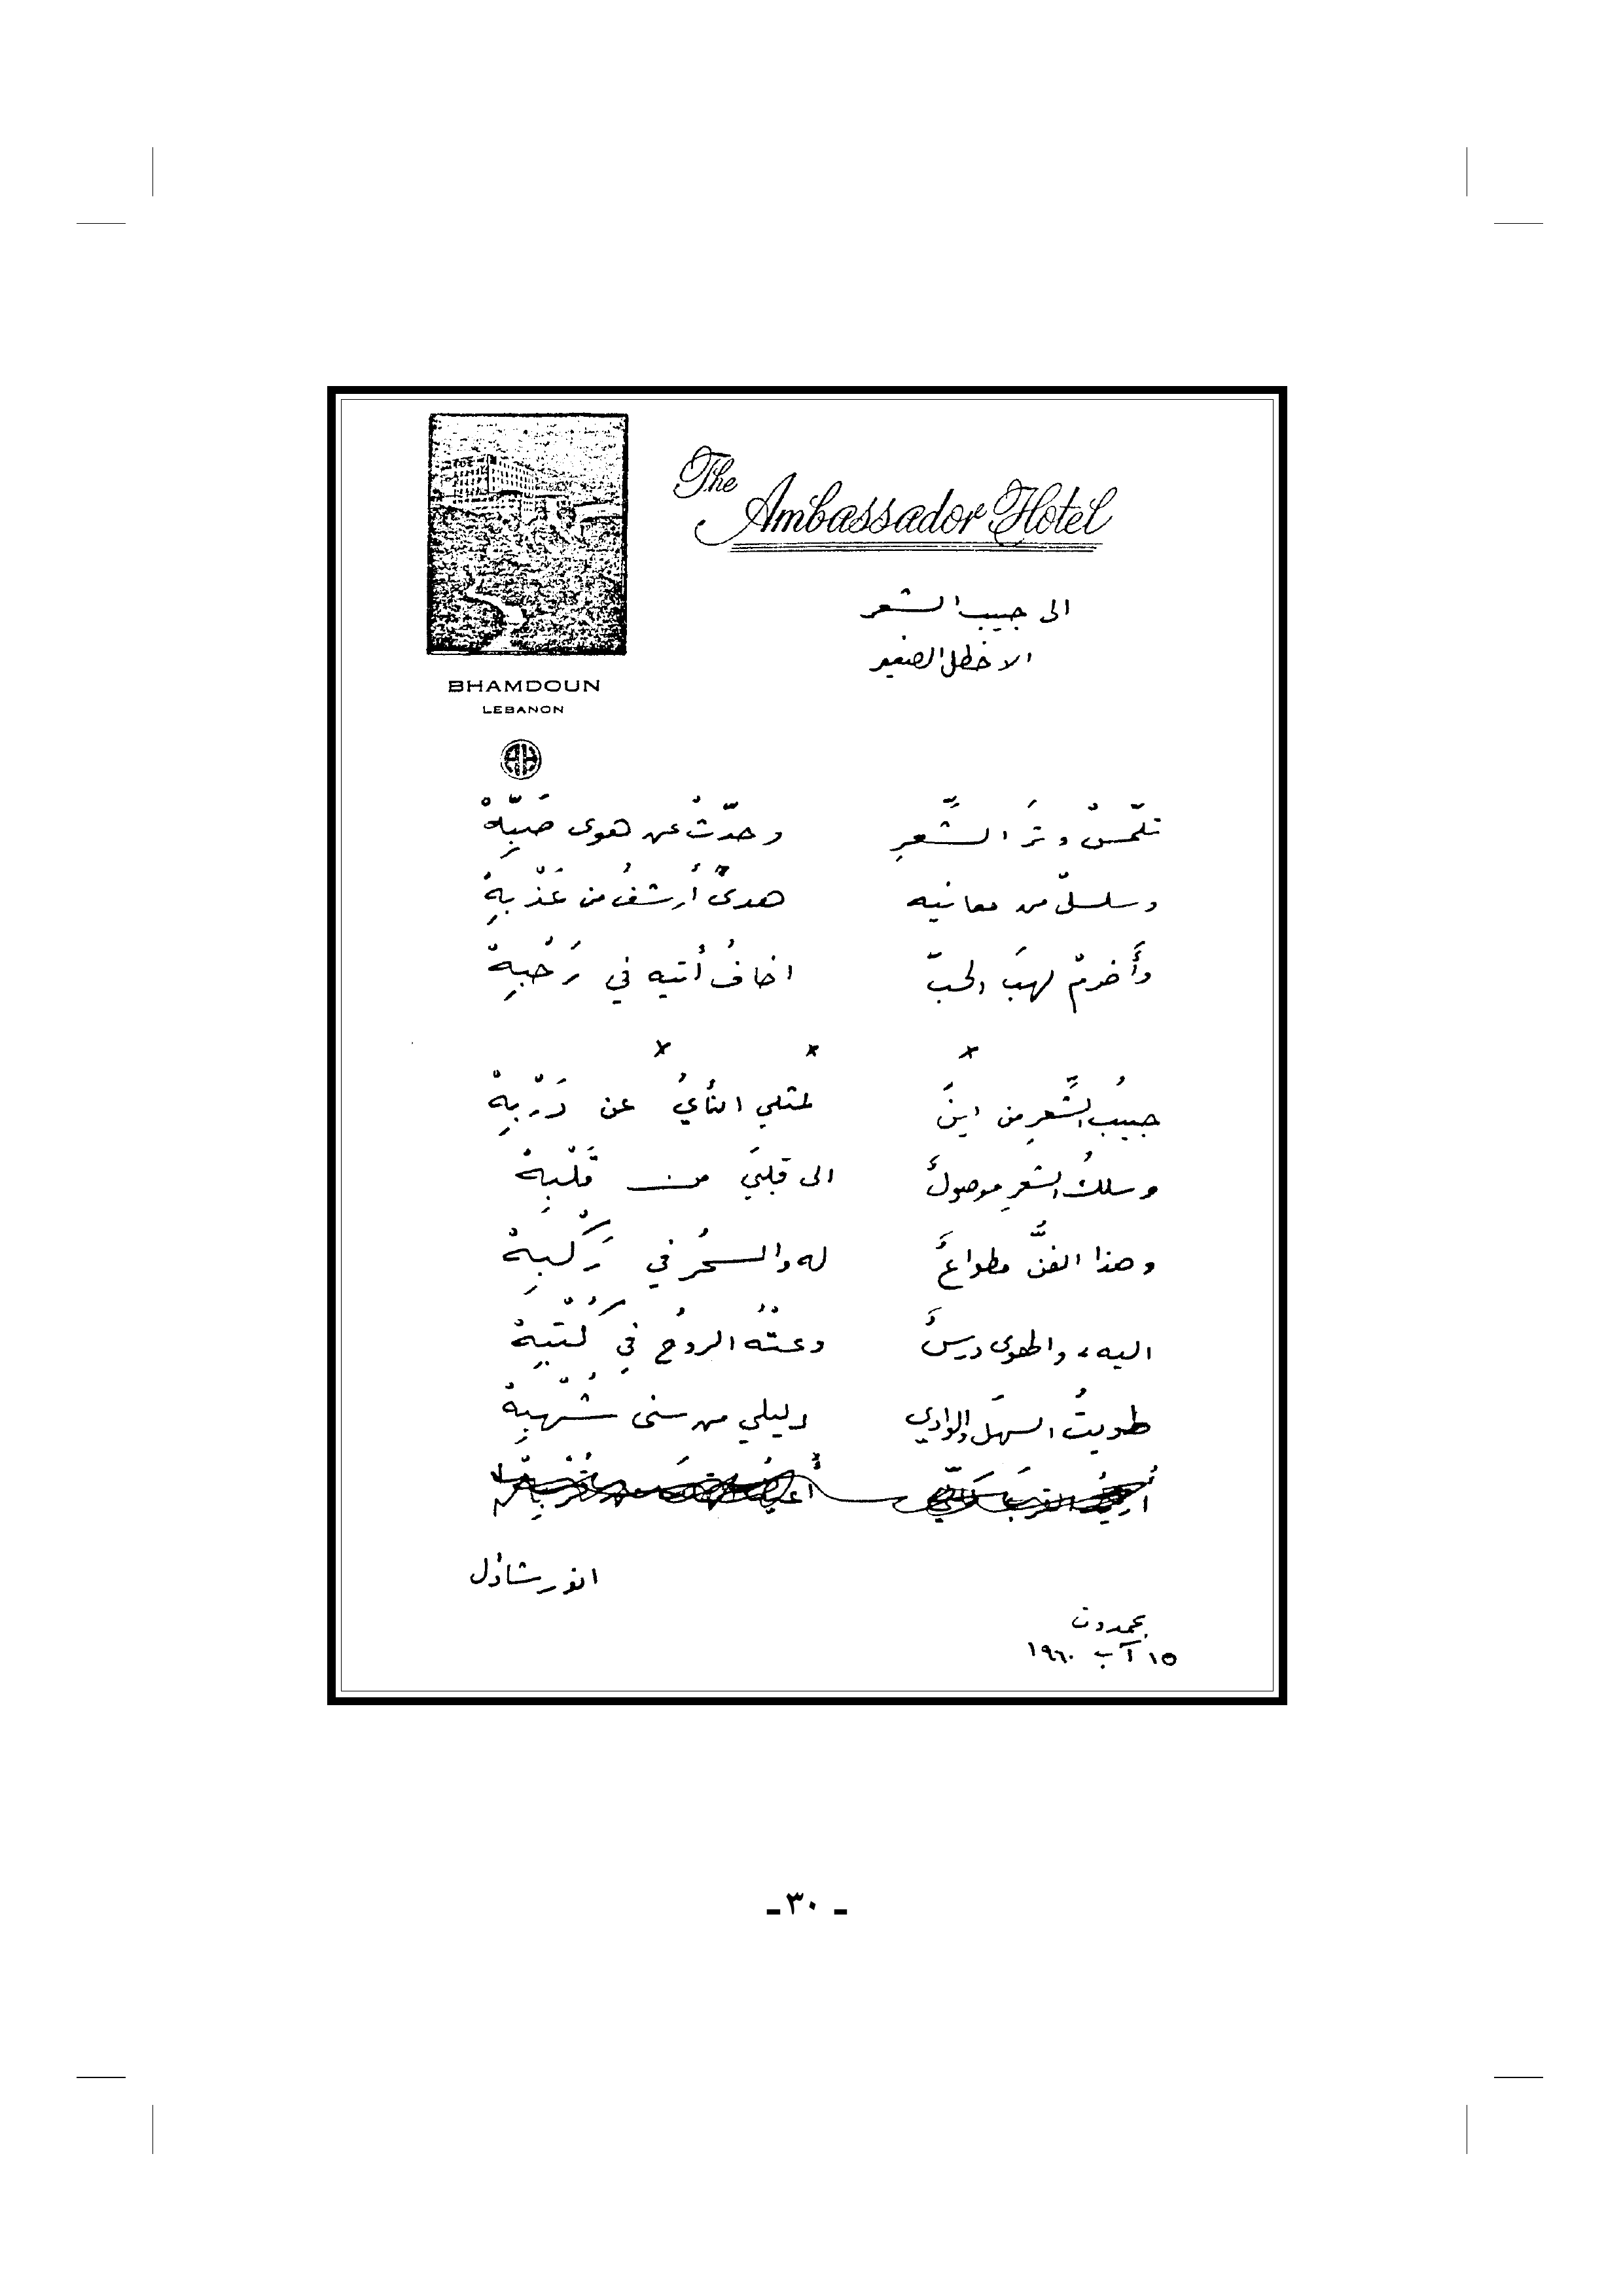 The Ambassador Hotel
BHAMDOUN
LEBANON
الى حبيب الشعر
الاخطل الصغير
تلمّسْ وترَ الشَّعرِ وحدّثْ عن هوى صَبِّهْ
وسلسلْ من معانيه هدىً أرشفُ من عَذْبِهْ
وأَضرمْ لهبَ الحبّ اخافُ أتيه في رَحْبِهْ
x x x
حبيبُ الشِّعرِ من اينَ لمثلي النأيُ عن دَرْبِهْ
وسلكُ الشعرِ موصولٌ الى قلبيَ من قَلْبِهْ
وهذا الفنُّ مطواعٌ له والسحرُ في رَكْبِهْ
اليه، والهوى درسٌ وعتْهُ الروحُ في كُتْبِهْ
طويتُ السهلَ والوادي دليلي من سنى شُهْبِهْ
انور شاؤل
بحمدون
١٥ آب ١٩٦٠
- ٣٠ -